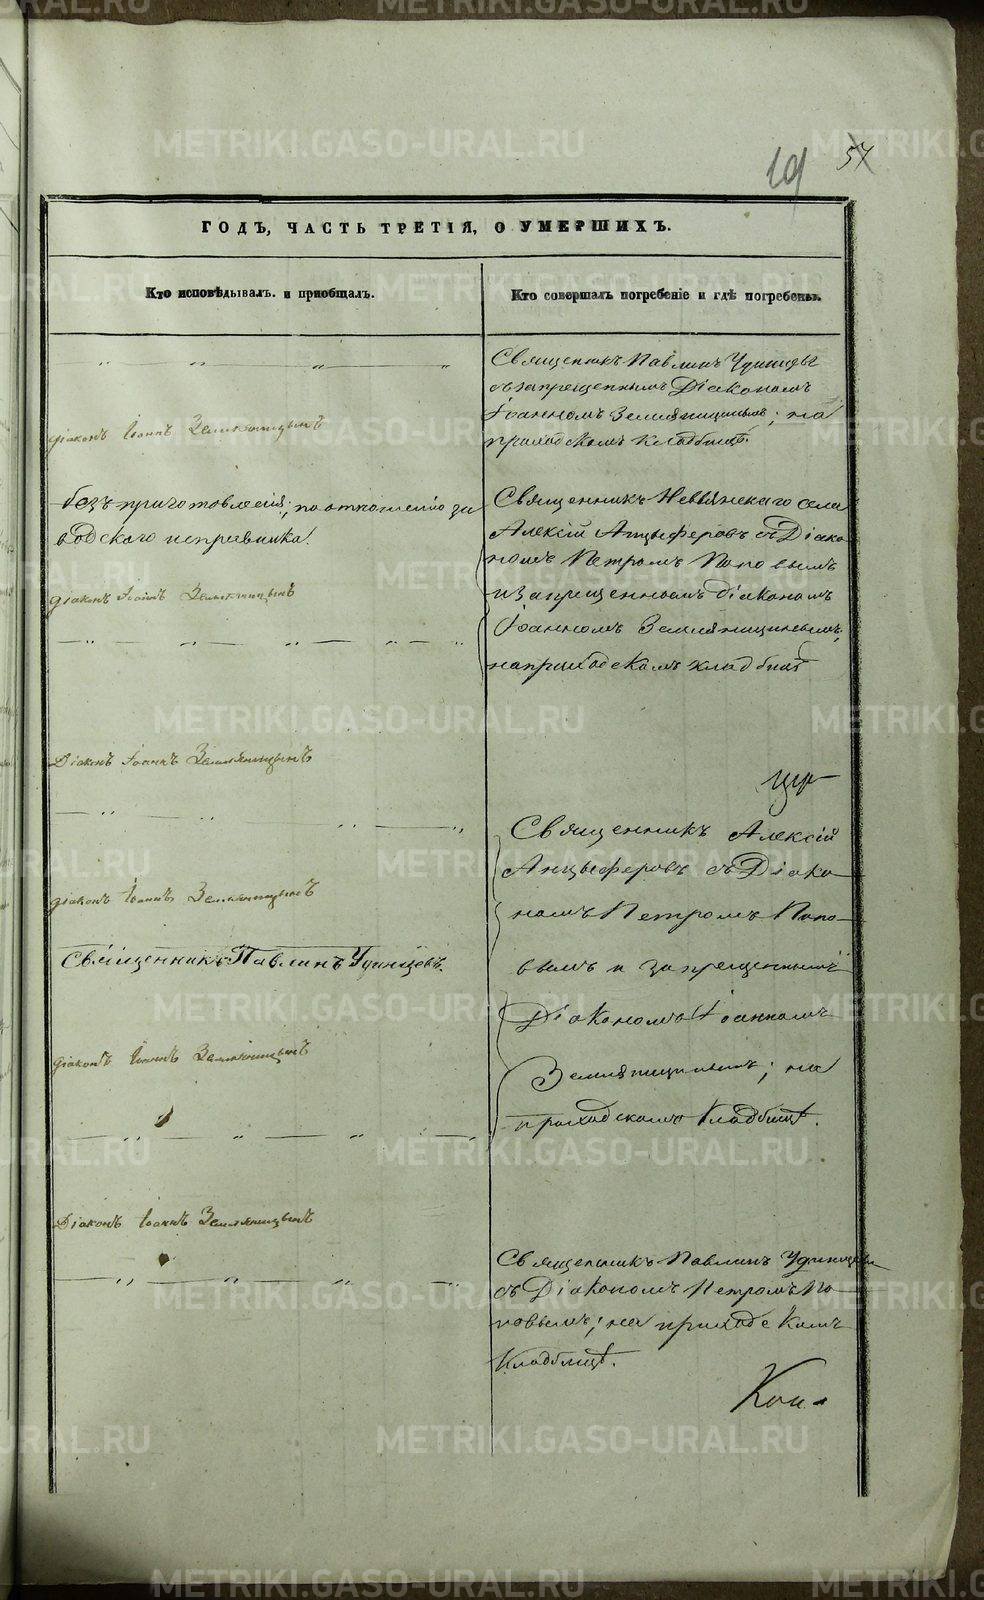 19 57
ГОДЪ, ЧАСТЬ ТРЕТІЯ, О УМЕРШИХЪ.
Кто исповѣдывалъ и приобщалъ.
Кто совершалъ погребеніе и гдѣ погребены.
діаконъ Іоаннъ Земляницынъ
безъ приготовленія; по отношенію за
водскаго исправника.
діаконъ Іоаннъ Земляницынъ
Діаконъ Іоаннъ Земляницынъ
діаконъ Іоаннъ Земляницынъ
Священникъ Павлинъ Удинцевъ.
діаконъ Іоаннъ Земляницынъ
Діаконъ Іоаннъ Земляницынъ
Священникъ Павлинъ Удинцевъ
съ запрещеннымъ Діакономъ
Іоанномъ Земляницинымъ; на
приходскомъ кладбищѣ.
Священникъ Невьянскаго села
Алексій Анцыферовъ съ Діако
номъ Петромъ Поповымъ
и запрещеннымъ діакономъ
Іоанномъ Земляницинымъ;
на приходскомъ кладбищѣ
Священникъ Алексій
Анцыферовъ съ Діако
номъ Петромъ Попо
вымъ и запрещеннымъ
Діакономъ Іоанномъ
Земляницинымъ; на
приходскомъ Кладбищѣ.
Священникъ Павлинъ Удинцевъ
съ Діакономъ Петромъ По
повымъ; на приходскомъ
Кладбищѣ.
METRIKI.GASO-URAL.RU